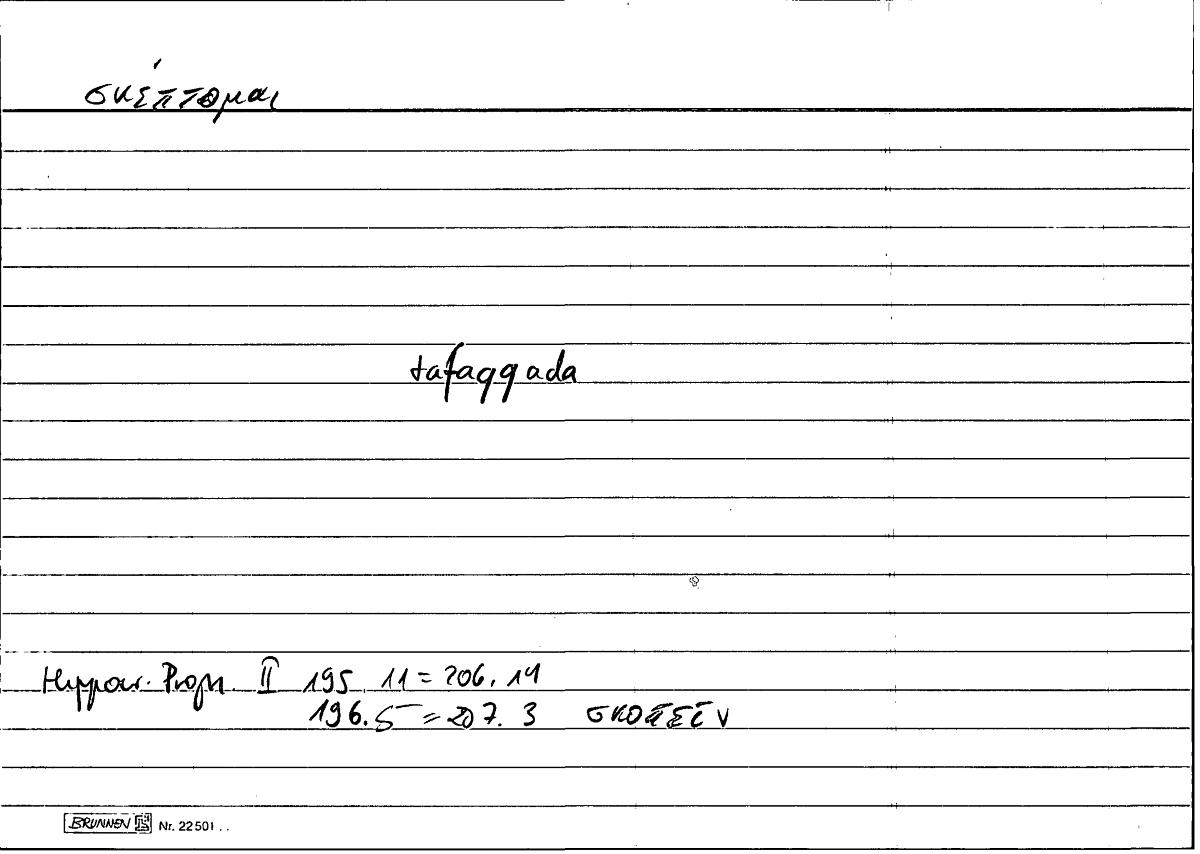 σκέπτομαι
tafaqqada
Hippocr. Progn. II 195, 11 = 206, 14
196. 5 = 207. 3 σκοπεῖν
BRUNNEN Nr. 22501 . .